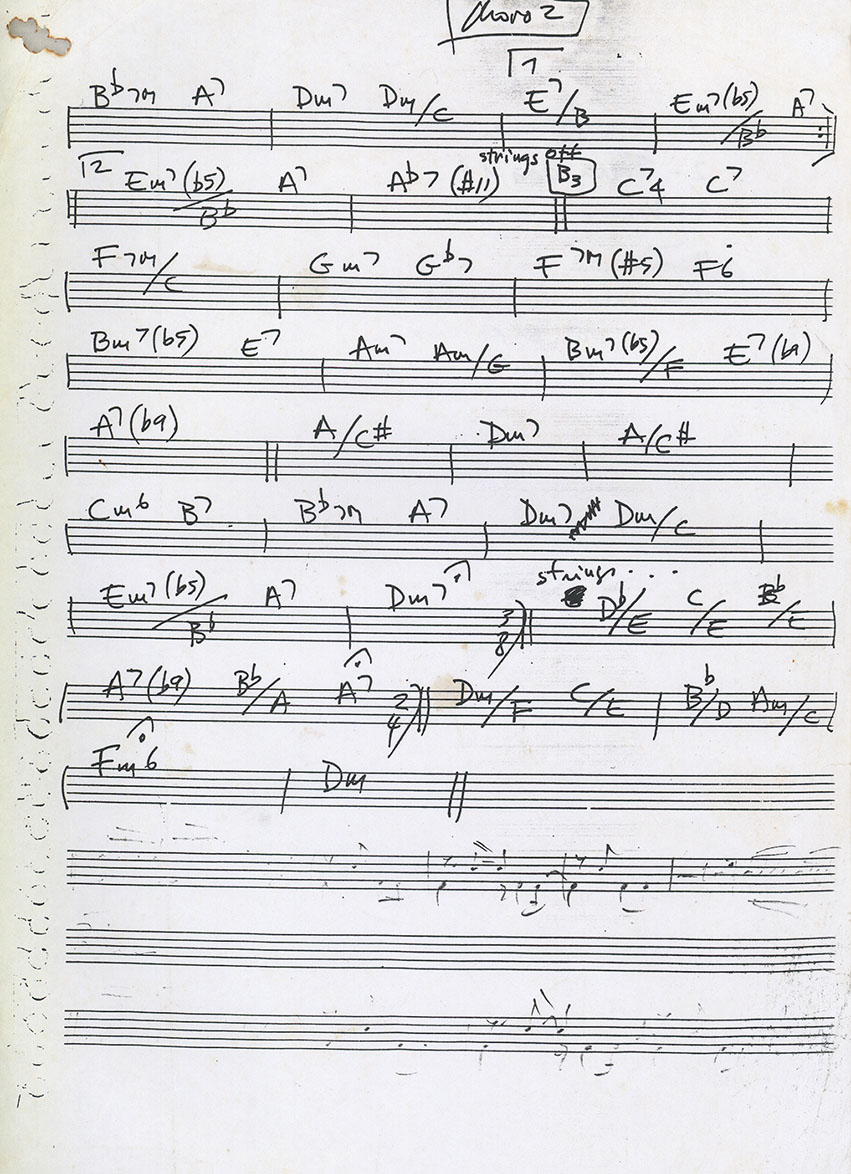 Choro 2
1
B♭7M A7 | Dm7 Dm/C | E7/B | Em7(b5)/B♭ A7 :|
2 strings off
Em7(b5)/B♭ A7 | A♭7(#11) || B3 C74 C7 |
F7M/C | Gm7 G♭7 | F7M(#5) F6 |
Bm7(b5) E7 | Am7 Am/G | Bm7(b5)/F E7(b9) |
A7(b9) || A/C# | Dm7 | A/C# |
Cm6 B7 | B♭7M A7 | Dm7 Dm/C |
strings...
Em7(b5)/B♭ A7 | Dm7 3/8 || D♭/E C/E B♭/E |
A7(b9) B♭/A A7 2/4 || Dm/F C/E | B♭/D Am/C |
Fm6 | Dm ||